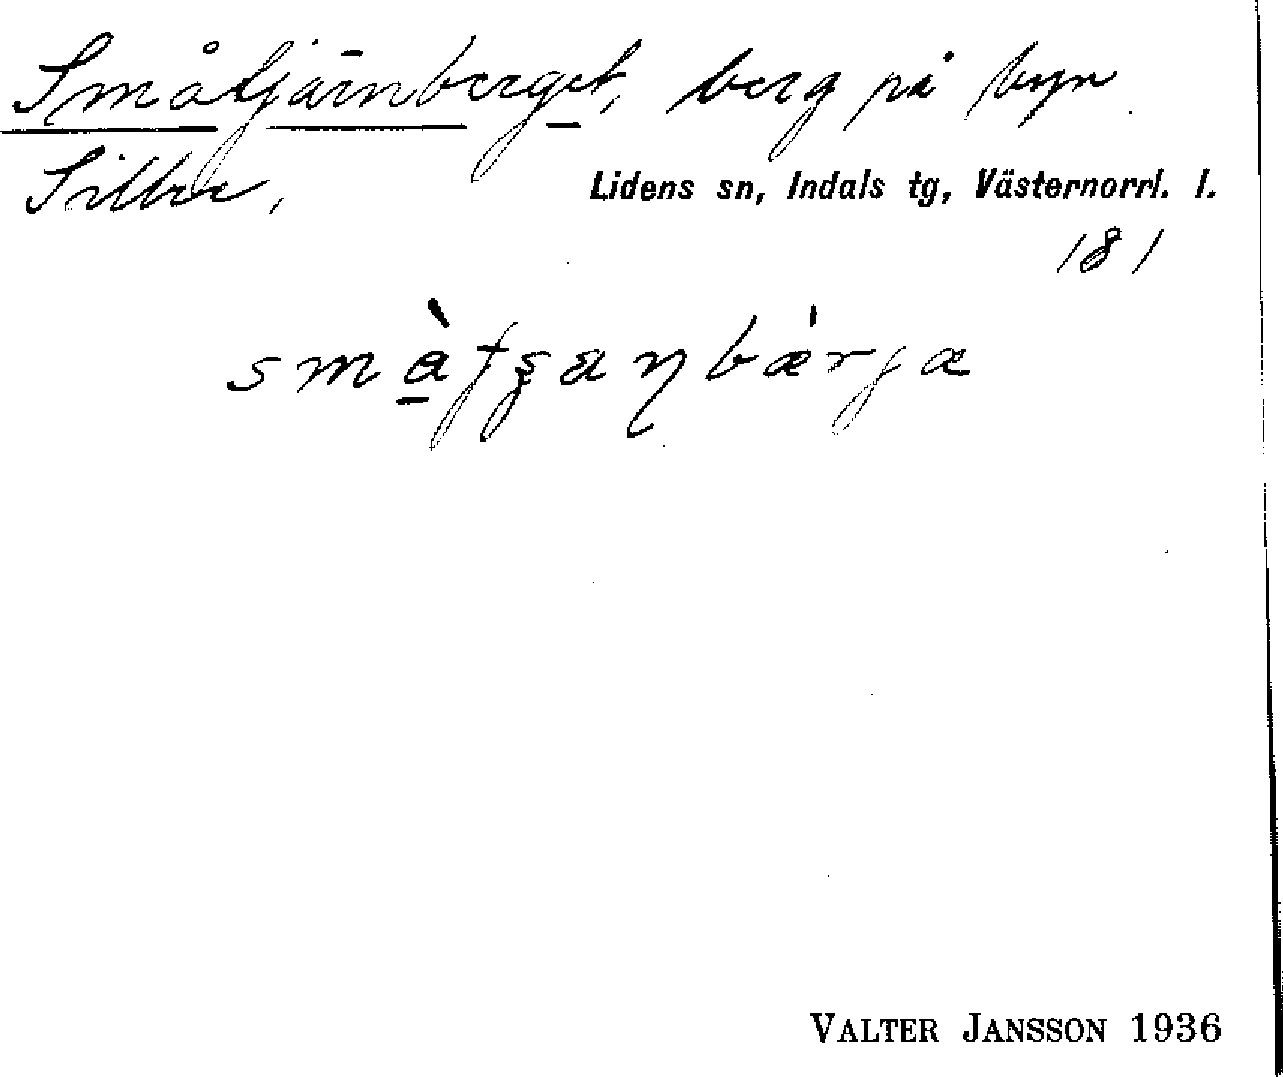 Småtjärnberget, berg på byn
Sillre,
Lidens sn, Indals tg, Västernorrl. l.
181
VALTER JANSSON 1936